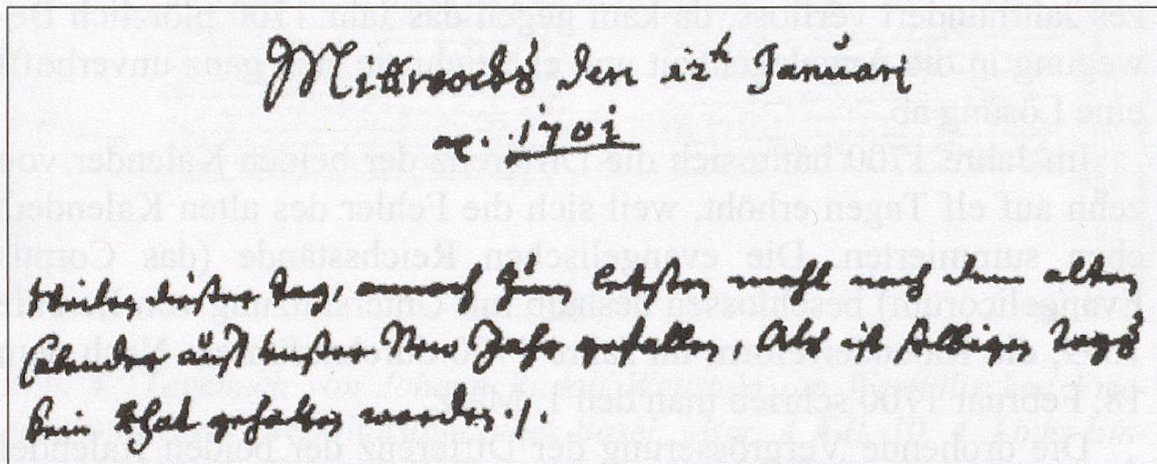 Mittwochs den 12ᵗ Januarÿ
a.º 1701
Weilen dieser Tag, annoch zum letsten mahl nach dem alten
Calender auff unser New Jahr gefallen, Als ist selbigen Tags
kein Rhat gehalten worden ./.